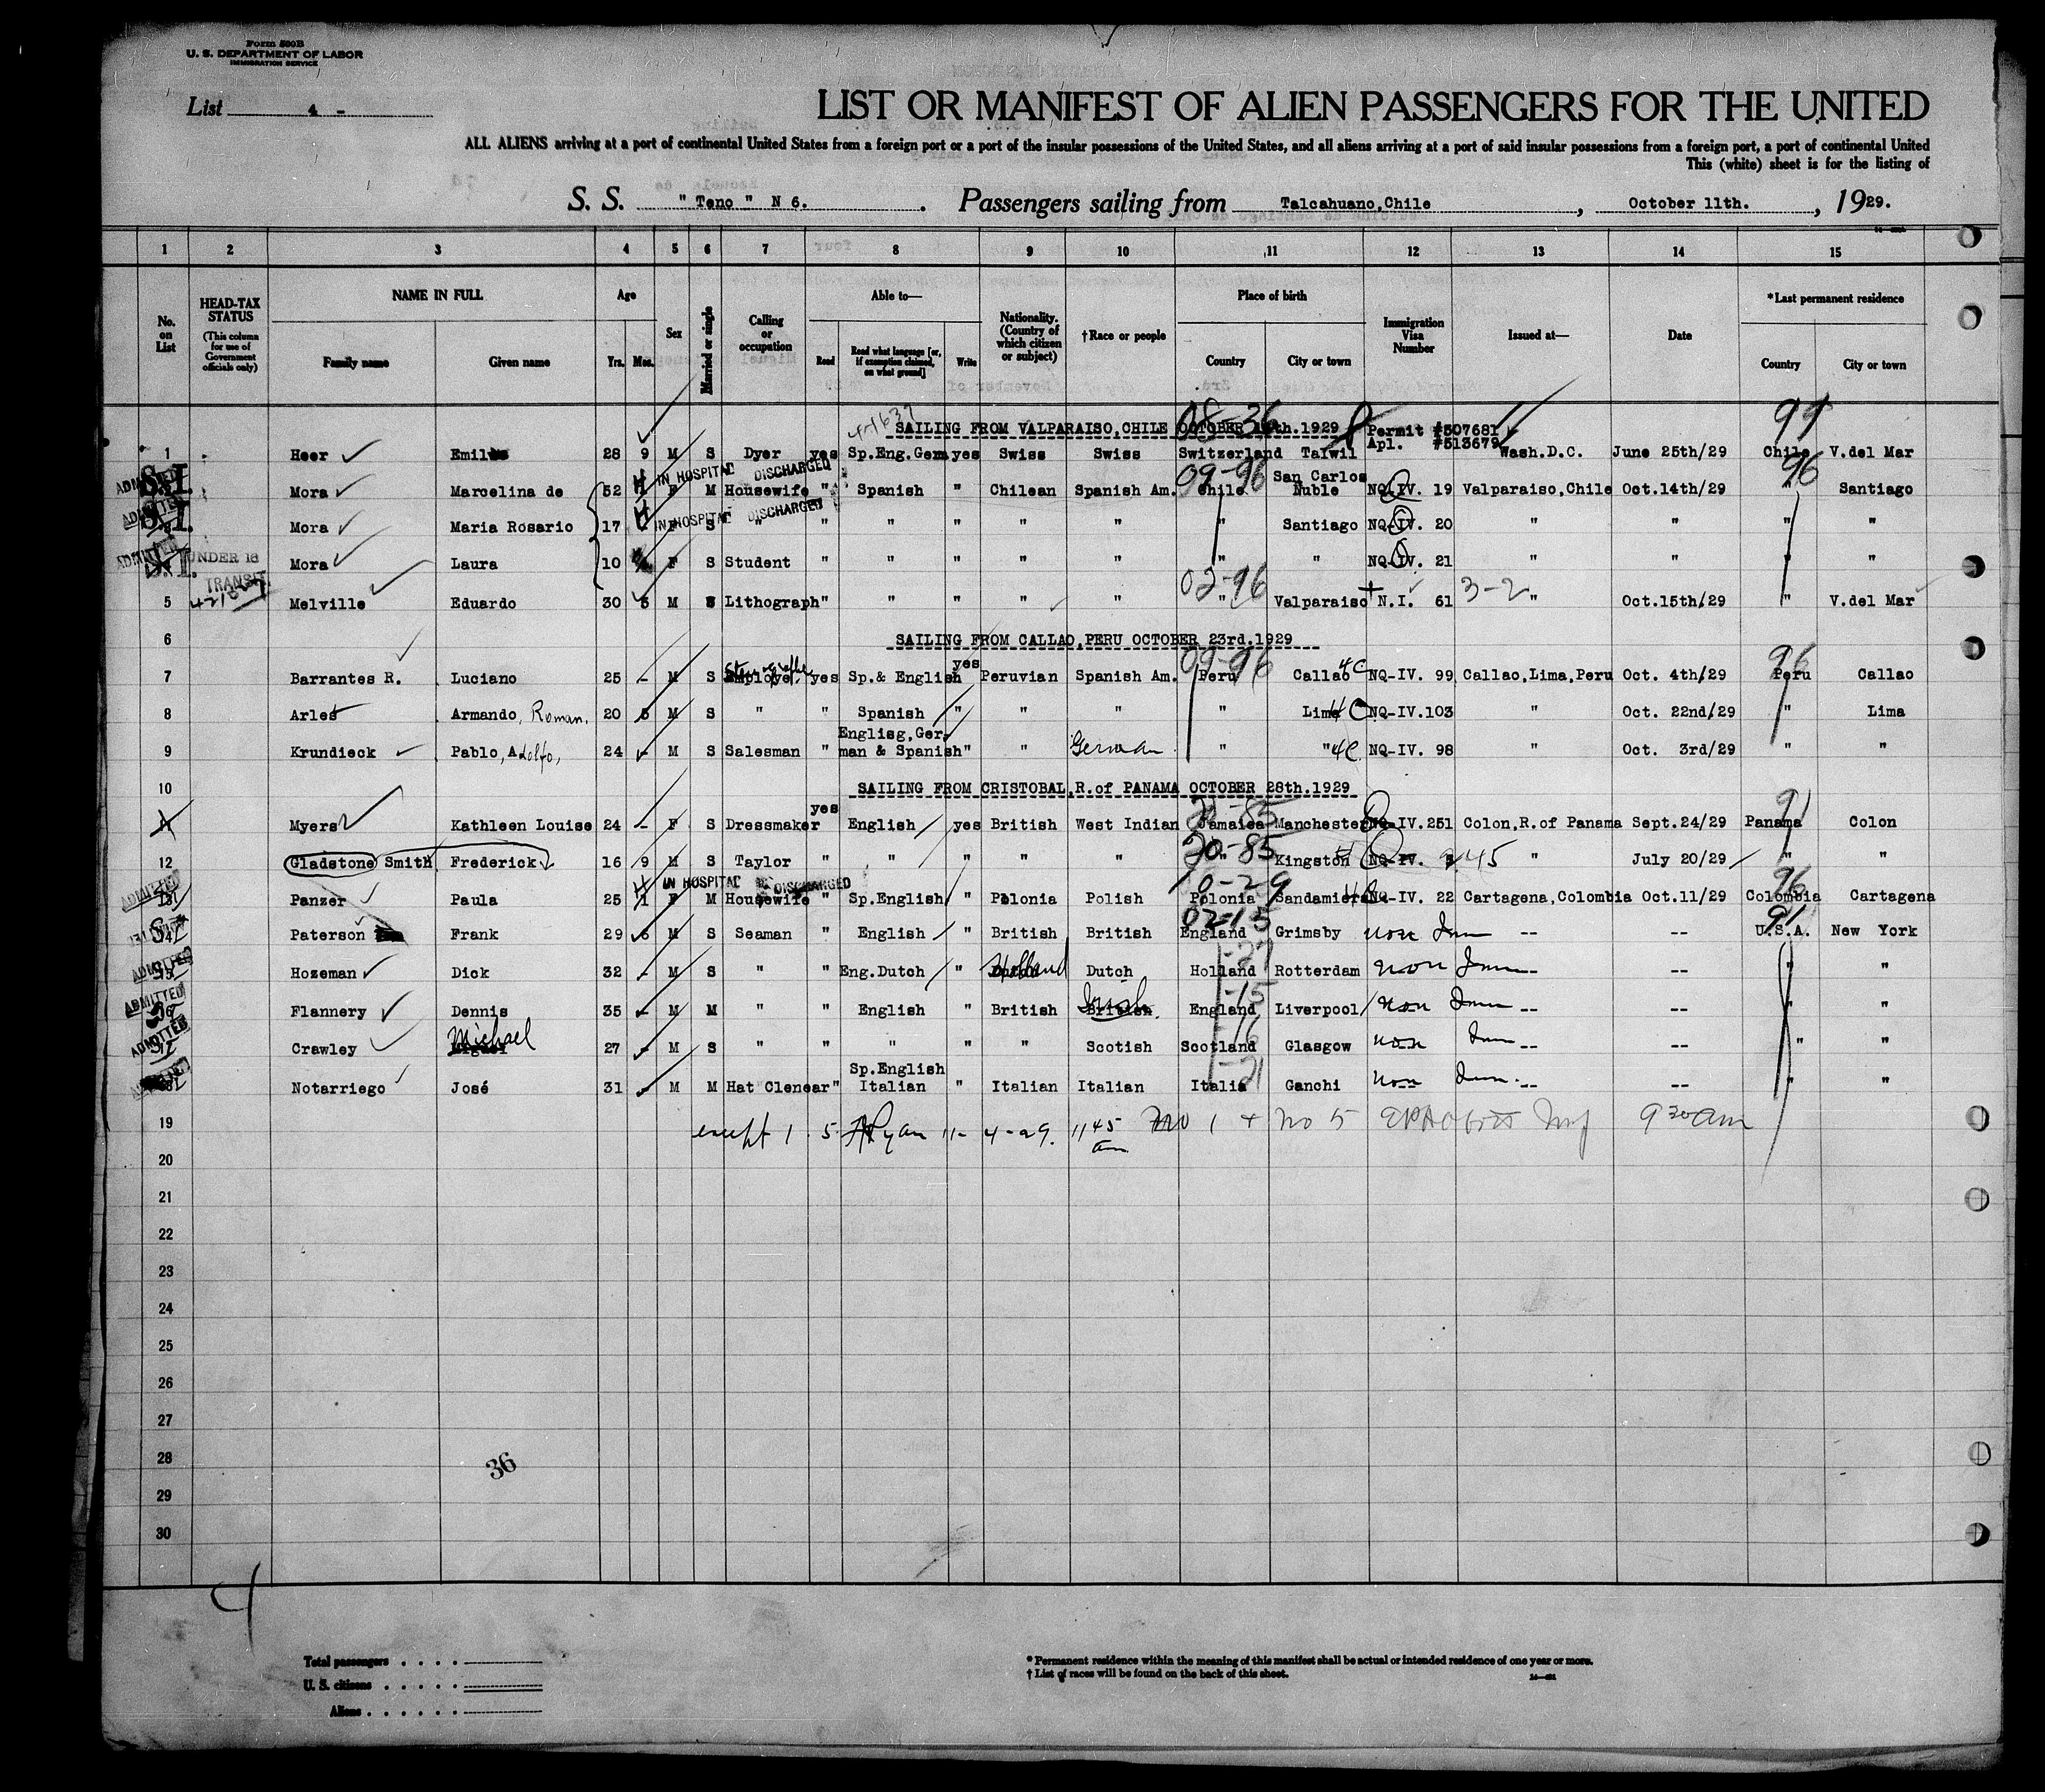 Form 500B
U. S. DEPARTMENT OF LABOR
IMMIGRATION SERVICE
List 4 -
LIST OR MANIFEST OF ALIEN PASSENGERS FOR THE UNITED
ALL ALIENS arriving at a port of continental United States from a foreign port or a port of the insular possessions of the United States, and all aliens arriving at a port of said insular possessions from a foreign port, a port of continental United
This (white) sheet is for the listing of
S. S. " Teno " N 6. Passengers sailing from Talcahuano,Chile, October 11th., 1929.
1 2 3 4 5 6 7 8 9 10 11 12 13 14 15
No. on List
HEAD-TAX STATUS (This column for use of Government officials only)
NAME IN FULL Family name Given name
Age Yrs. Mos.
Sex
Married or single
Calling or occupation
Able to— Read Read what language [or, if exemption claimed, on what ground] Write
Nationality. (Country of which citizen or subject)
†Race or people
Place of birth Country City or town
Immigration Visa Number
Issued at—
Date
*Last permanent residence Country City or town
4-1637 SAILING FROM VALPARAISO,CHILE OCTOBER th.1929 08-36 Permit #507681 Apl. #513679 99
1 Heer Emil 28 9 M S Dyer yes Sp.Eng.Gem yes Swiss Swiss Switzerland Talwil Wash.D.C. June 25th/29 Chile V.del Mar
IN HOSPITAL DISCHARGED 09-96 96
ADMITTED S.I. Mora Marcelina de 52 F M Housewife " Spanish " Chilean Spanish Am. Chile San Carlos Nuble NQ-IV. 19 Valparaiso,Chile Oct.14th/29 " Santiago
IN HOSPITAL DISCHARGED
S.I. Mora Maria Rosario 17 - F S " " " " " " " Santiago NQ-IV. 20 " " " "
ADMITTED S.I. UNDER 16 Mora Laura 10 F S Student " " " " " " " NQ-IV. 21 " " " "
TRANSIT 02-96 3-2
5 Melville Eduardo 30 5 M S Lithograph " " " " " " Valparaiso N.I. 61 " Oct.15th/29 " V.del Mar
6 SAILING FROM CALLAO,PERU OCTOBER 23rd.1929
09-96 96
7 Barrantes R. Luciano 25 - M S yes Sp.& English yes Peruvian Spanish Am. Peru Callao 4C NQ-IV. 99 Callao,Lima,Peru Oct. 4th/29 Peru Callao
8 Arles Armando, Roman, 20 5 M S " " Spanish " " " " Lima 4C NQ-IV.103 " Oct. 22nd/29 " Lima
9 Krundieck Pablo, Adolfo, 24 - M S Salesman " Englisg,Ger. man & Spanish " " German " " 4C NQ-IV. 98 " Oct. 3rd/29 " "
10 SAILING FROM CRISTOBAL,R.of PANAMA OCTOBER 28th.1929
20-85 91
11 Myers Kathleen Louise 24 - F S Dressmaker yes English yes British West Indian Jamaica Manchester NQ-IV.251 Colon,R.of Panama Sept.24/29 Panama Colon
12 Gladstone Smith Frederick 16 9 M S Taylor " " " " " 20-85 " Kingston NQ-IV. 45 " July 20/29 " "
IN HOSPITAL DISCHARGED 0-29 96
ADMITTED 13 Panzer Paula 25 1 F M Housewife " Sp.English " Polonia Polish Polonia NQ-IV. 22 Cartagena,Colombia Oct.11/29 Colombia Cartagena
02-15 91
Paterson Frank 29 5 M S Seaman " English " British British England Grimsby non Imm -- -- U.S.A. New York
ADMITTED Hozeman Dick 32 - M S " " Eng.Dutch " Holland Dutch Holland -27 Rotterdam non Imm -- -- " "
ADMITTED Flannery Dennis 35 - M M " " English " British Irish England -15 Liverpool non Imm -- -- " "
ADMITTED Crawley Michael 27 - M S " " " " " Scotish Scotland -16 Glasgow non Imm -- -- " "
Notarriego José 31 - M M Hat Clenear " Sp.English Italian " Italian Italian Italia -21 Ganchi non Imm. -- -- " "
19 except 1 - 5. Ryan 11-4-29. 11 45 am no 1 + no 5 9 30 am
20
21
22
23
24
25
26
27
28
36
29
30
4
Total passengers . . . .
U. S. citizens . . . . .
Aliens . . . . . .
* Permanent residence within the meaning of this manifest shall be actual or intended residence of one year or more.
† List of races will be found on the back of this sheet.